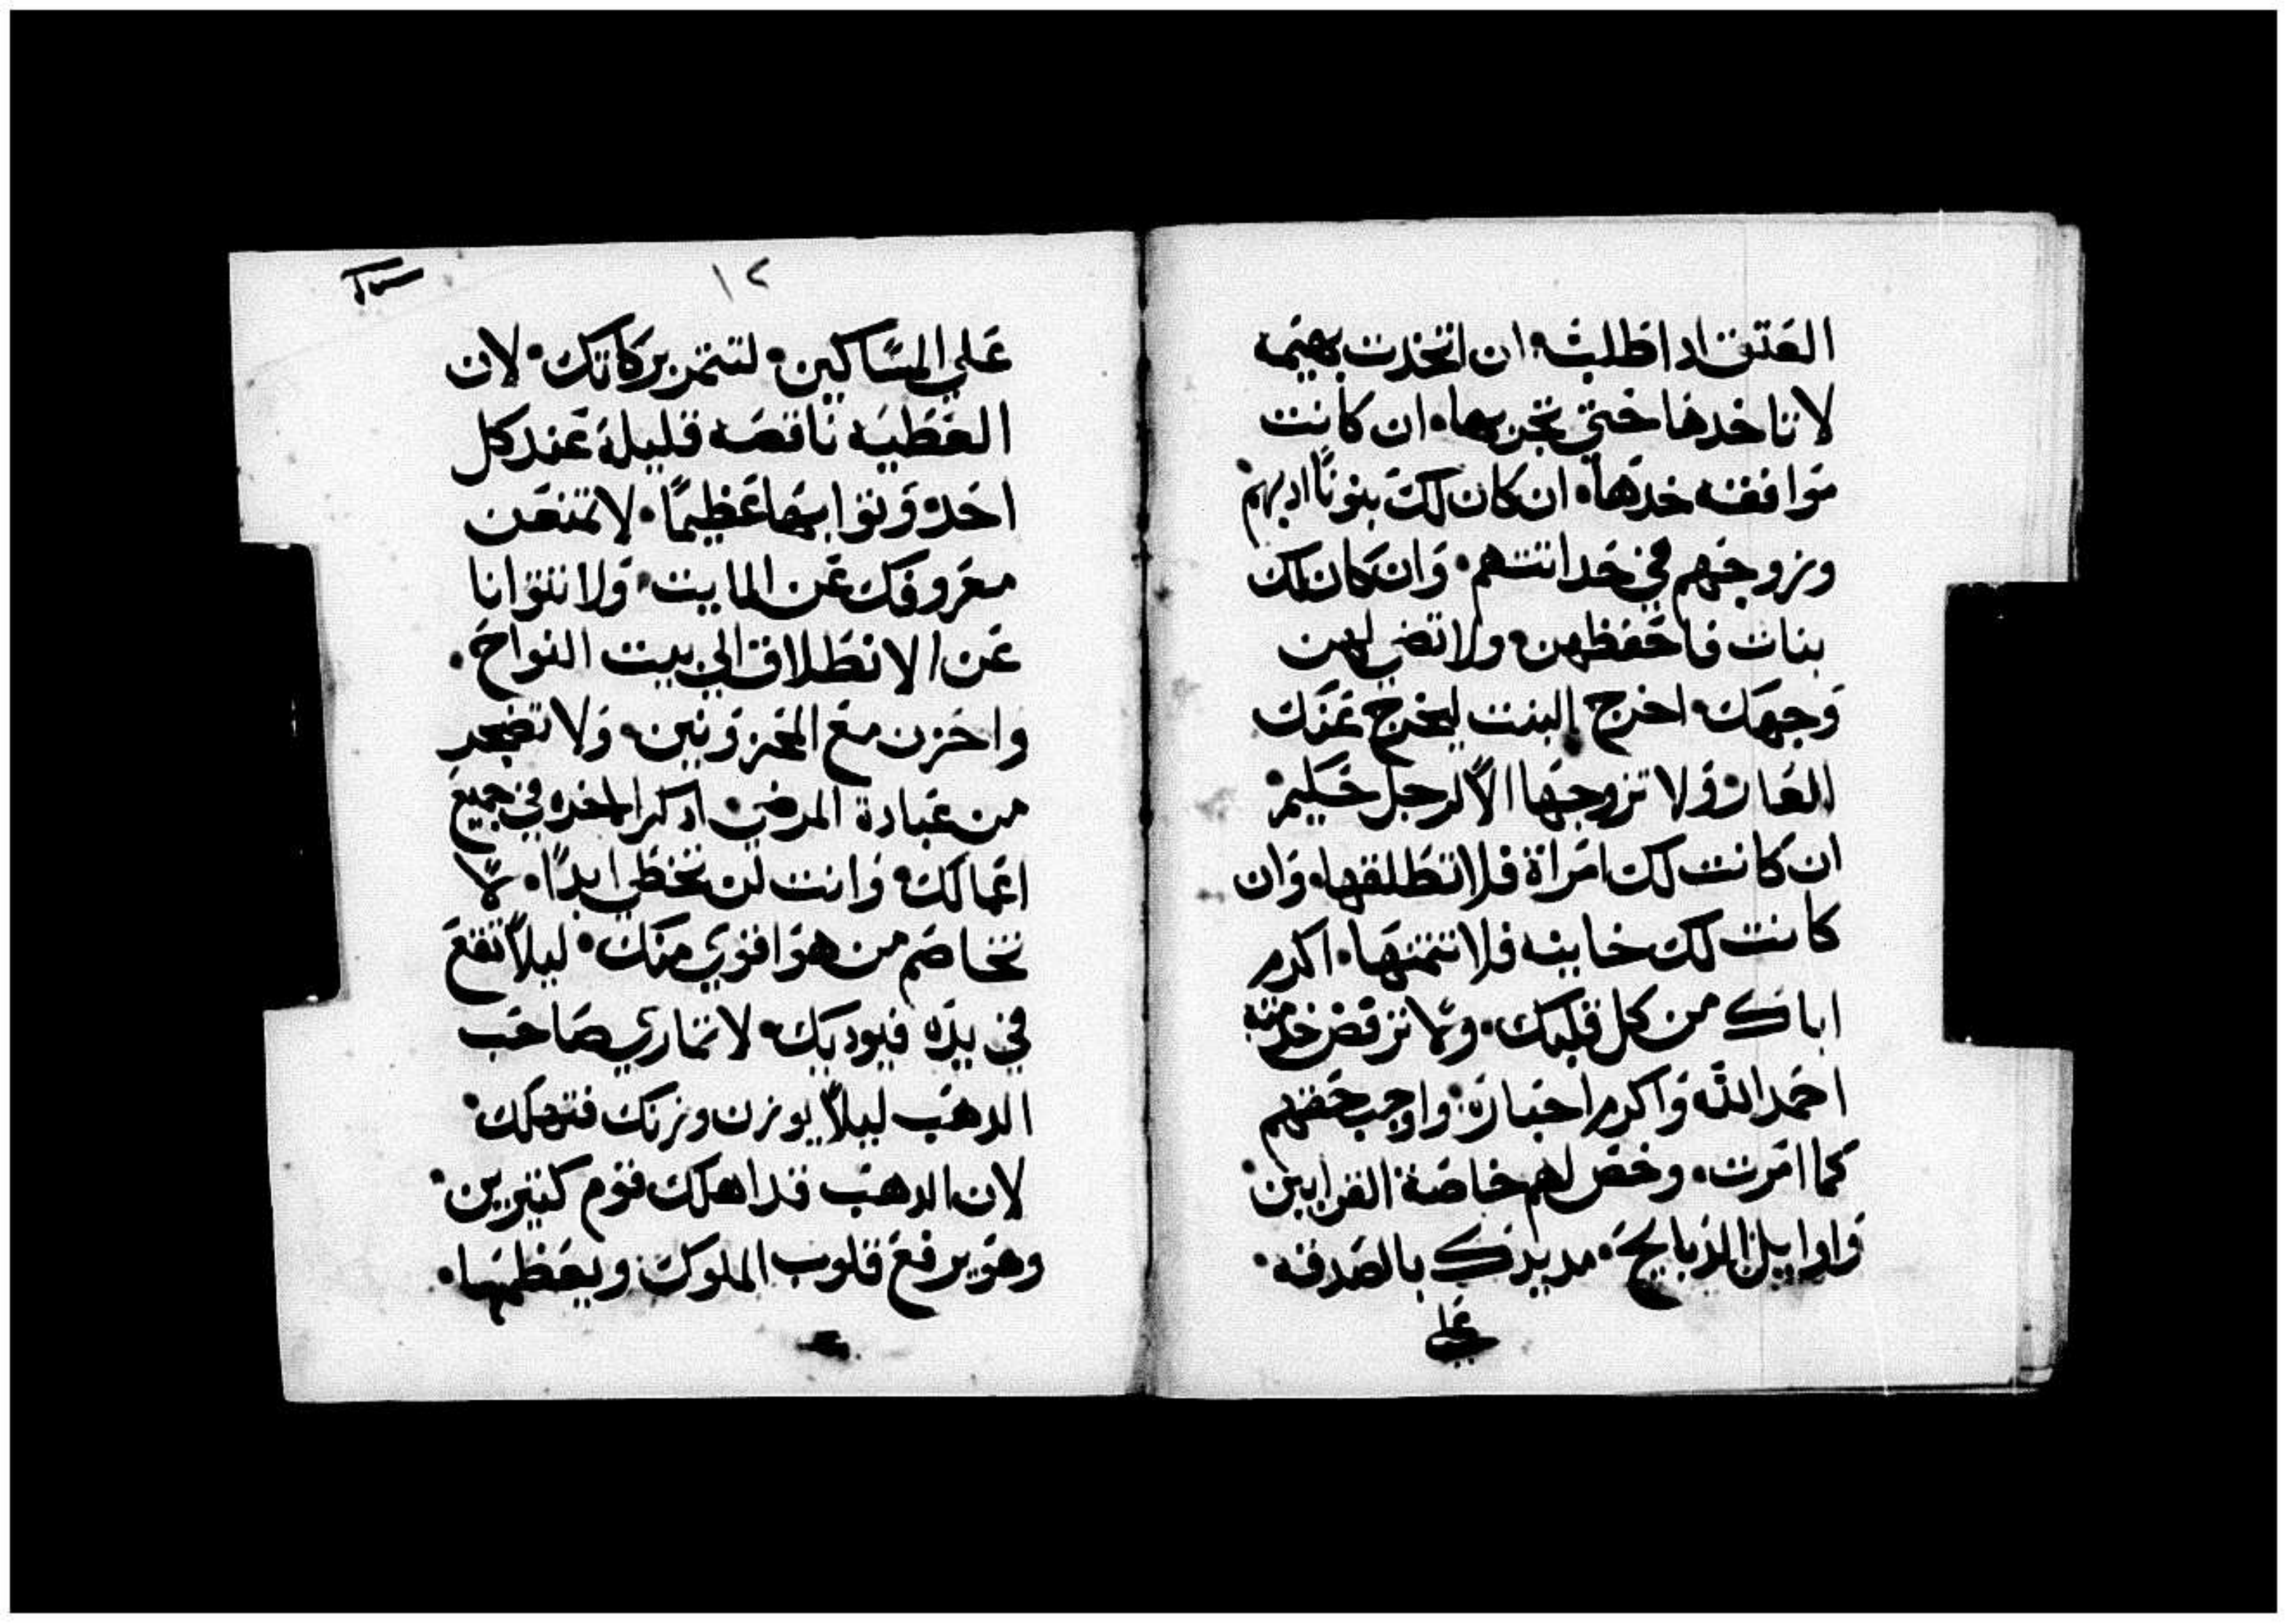 العتق اداطلبه • ان اتخدت بهيمه
لا تاخدها حتي تجربها • ان كانت
موافقه خدها • ان كان لك بنونًا ادبهم •
وزوجهم في حداثتهم • وان كان لك
بنات فاحفظهن • ولا تضي لهن
وجهك • اخرج البنت ليخرج عنك
العار • ولا تزوجها الّا لرجل حكيم •
ان كانت لك امراة فلا تطلقها • وان
كانت لك خاينه فلا تتمنها • اكرم
اباك من كل قلبك • ولا ترفض خدمته
احمد الله واكرم احباره • واوجب حقهم
كما امرت • وخص لهم خاصة القرابين •
واوايل الذبايح • مد يدك بالصدقه •
علي
١٢
علي المساكين • لتتمر بركاتك • لان
العطيه ناقصه قليلة عند كل
احد • وثوابها عظيمًا • لا تمنعن
معروفك عن المايت • ولا تتوانا
عن الانطلاق الي بيت النواح •
واحزن مع المحزونين • ولا تضجر
من عيادة المرضي • اذكر الاخره في جميع
اعمالك • وانت لن تخطي ابدًا • لا
تخاصم من هو اقوي منك • ليلّا تقع
في يده فيوديك • لا تماري صاحب
الدهب ليلّا يوزن وزنك فتهلك •
لان الدهب قد اهلك قوم كتيرين •
وهو يرفع قلوب الملوك ويعظمها •